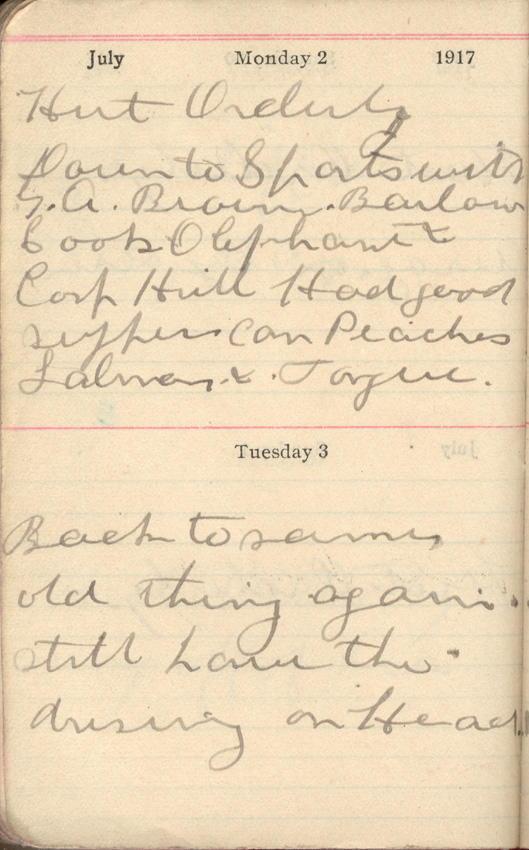 July Monday 2 1917
Hut Orderly
Down to Sports with
G.A. Brown. Barlow
Cook Olephant &
Corp Hill Had good
supper Can Peaches
Salmon & Tongue.
Tuesday 3
Back to same
old thing again.
still have the
dressing on Head.